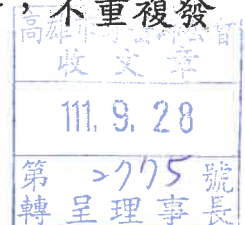 ,不重複發
高雄市
收文章
111. 9. 28
第 2775 號
轉呈理事長